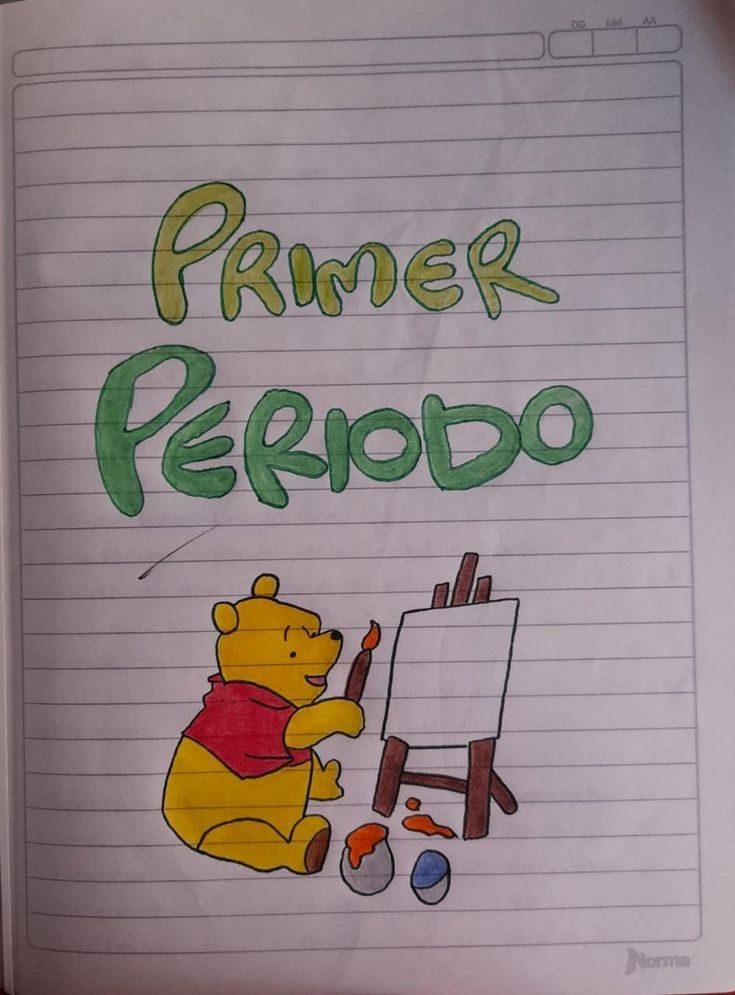 DD MM AA
PRIMER
PERIODO
Norma